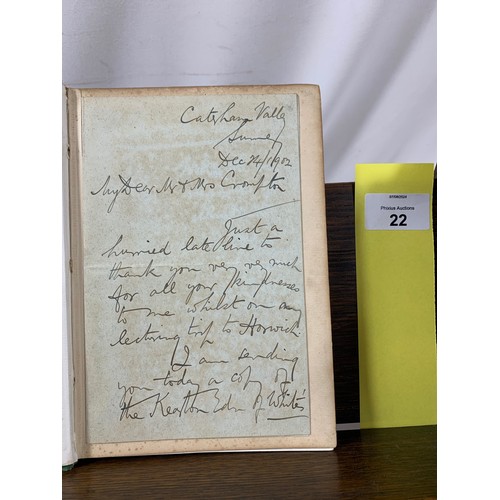 Caterham Valley
Surrey
Dec 24/1902
My Dear Mr & Mrs Crompton
Just a
hurried late line to
thank you very very much
for all your kindnesses
to me whilst on my
lecturing trip to Horwich.
I am sending
you today a copy of
the Kearton Edn of White's
Phoxius Auctions
22